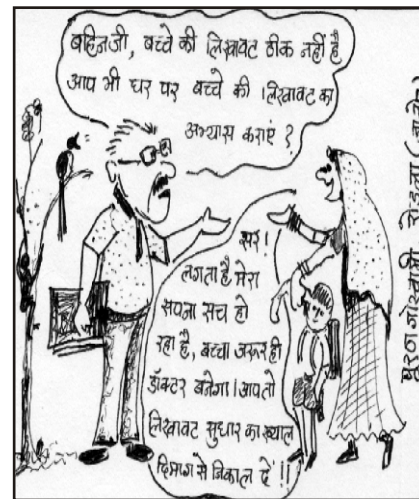 बहिनजी, बच्चे की लिखावट ठीक नहीं है
आप भी घर पर बच्चे की लिखावट का
अभ्यास कराएं ?
सर।
लगता है मेरा
सपना सच हो
रहा है, बच्चा जरूर ही
डॉक्टर बनेगा। आप तो
लिखावट सुधार का ख्याल
दिमाग से निकाल दें !!